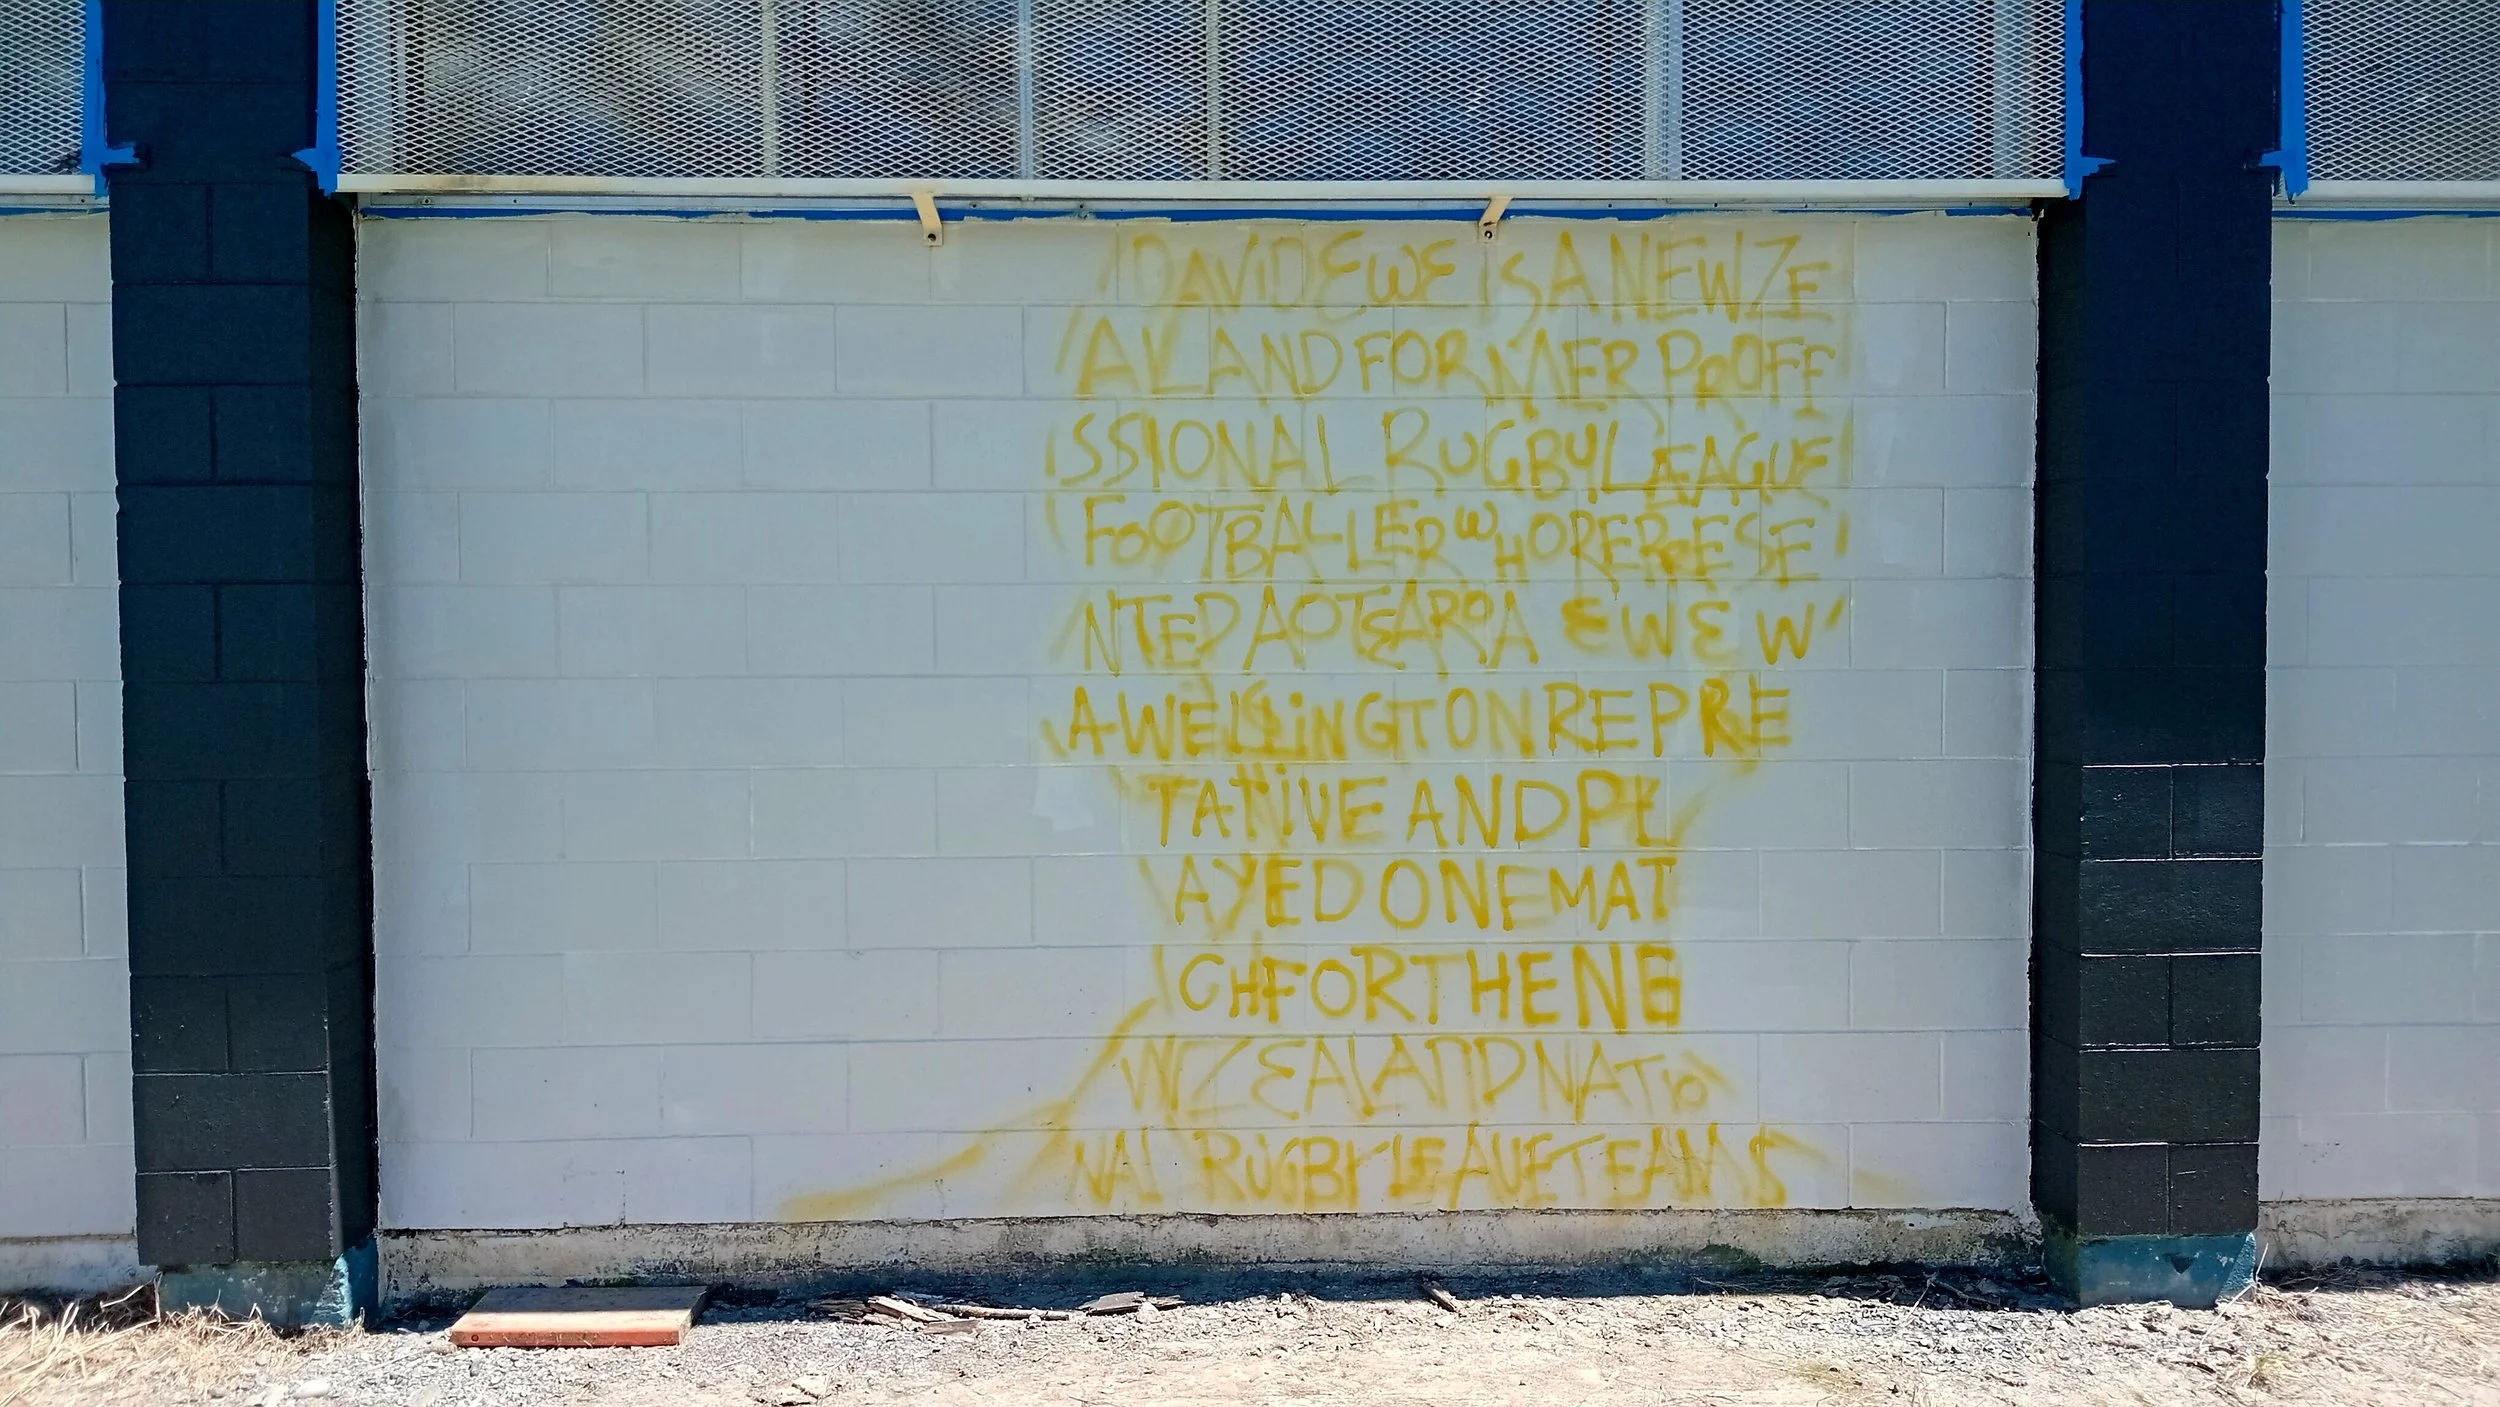 DAVID EWE IS A NEW ZE
ALAND FORMER PROFF
SSIONAL RUGBY LEAGUE
FOOTBALLER WHO REPRESE
NTED AOTEAROA EWE W
A WELLINGTON REPRE
TATIVE AND PL
AYED ONE MAT
CH FOR THE NE
W ZEALAND NATIO
NAL RUGBY LEAUE TEAMS